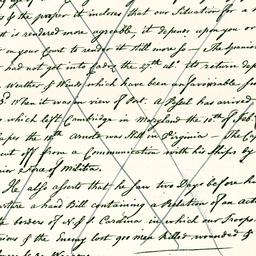 the paper it incloses that our Situation for a
is rendered more agreeable, it depends upon you or
on your Court to render it still more so — The Spanish
had not got into Cadiz the 27th ult. Its return dep
weather & Winds which have been unfavorable for
3d When it was in view of Port. A Vessel has arrived
which left Cambridge in Maryland the 18th of Feb
the 10th Arnold was still in Virginia — The
cut off from a Communication with his Ships by
of Militia.
He also asserts that he saw two Days before h
a hand Bill containing a Relation of an act
borders of N. & S. Carolina in which our Troops
of the Enemy lost 900 men killed wounded &